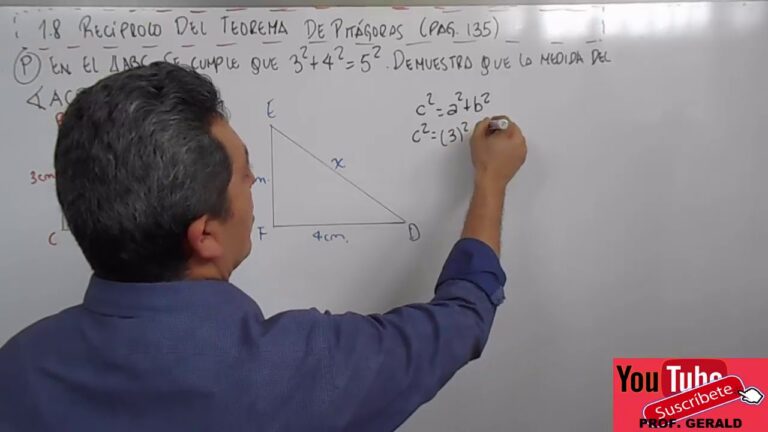 1.8 RECÍPROCO DEL TEOREMA DE PITÁGORAS (PAG. 135)
P EN EL ABC SE CUMPLE QUE 3²+4²=5². DEMUESTRA QUE LA MEDIDA DEL
∢ AC
E
c²=a²+b²
c²=(3)²
3cm
x
C
F
4cm.
D
YouTube
Suscríbete
PROF. GERALD